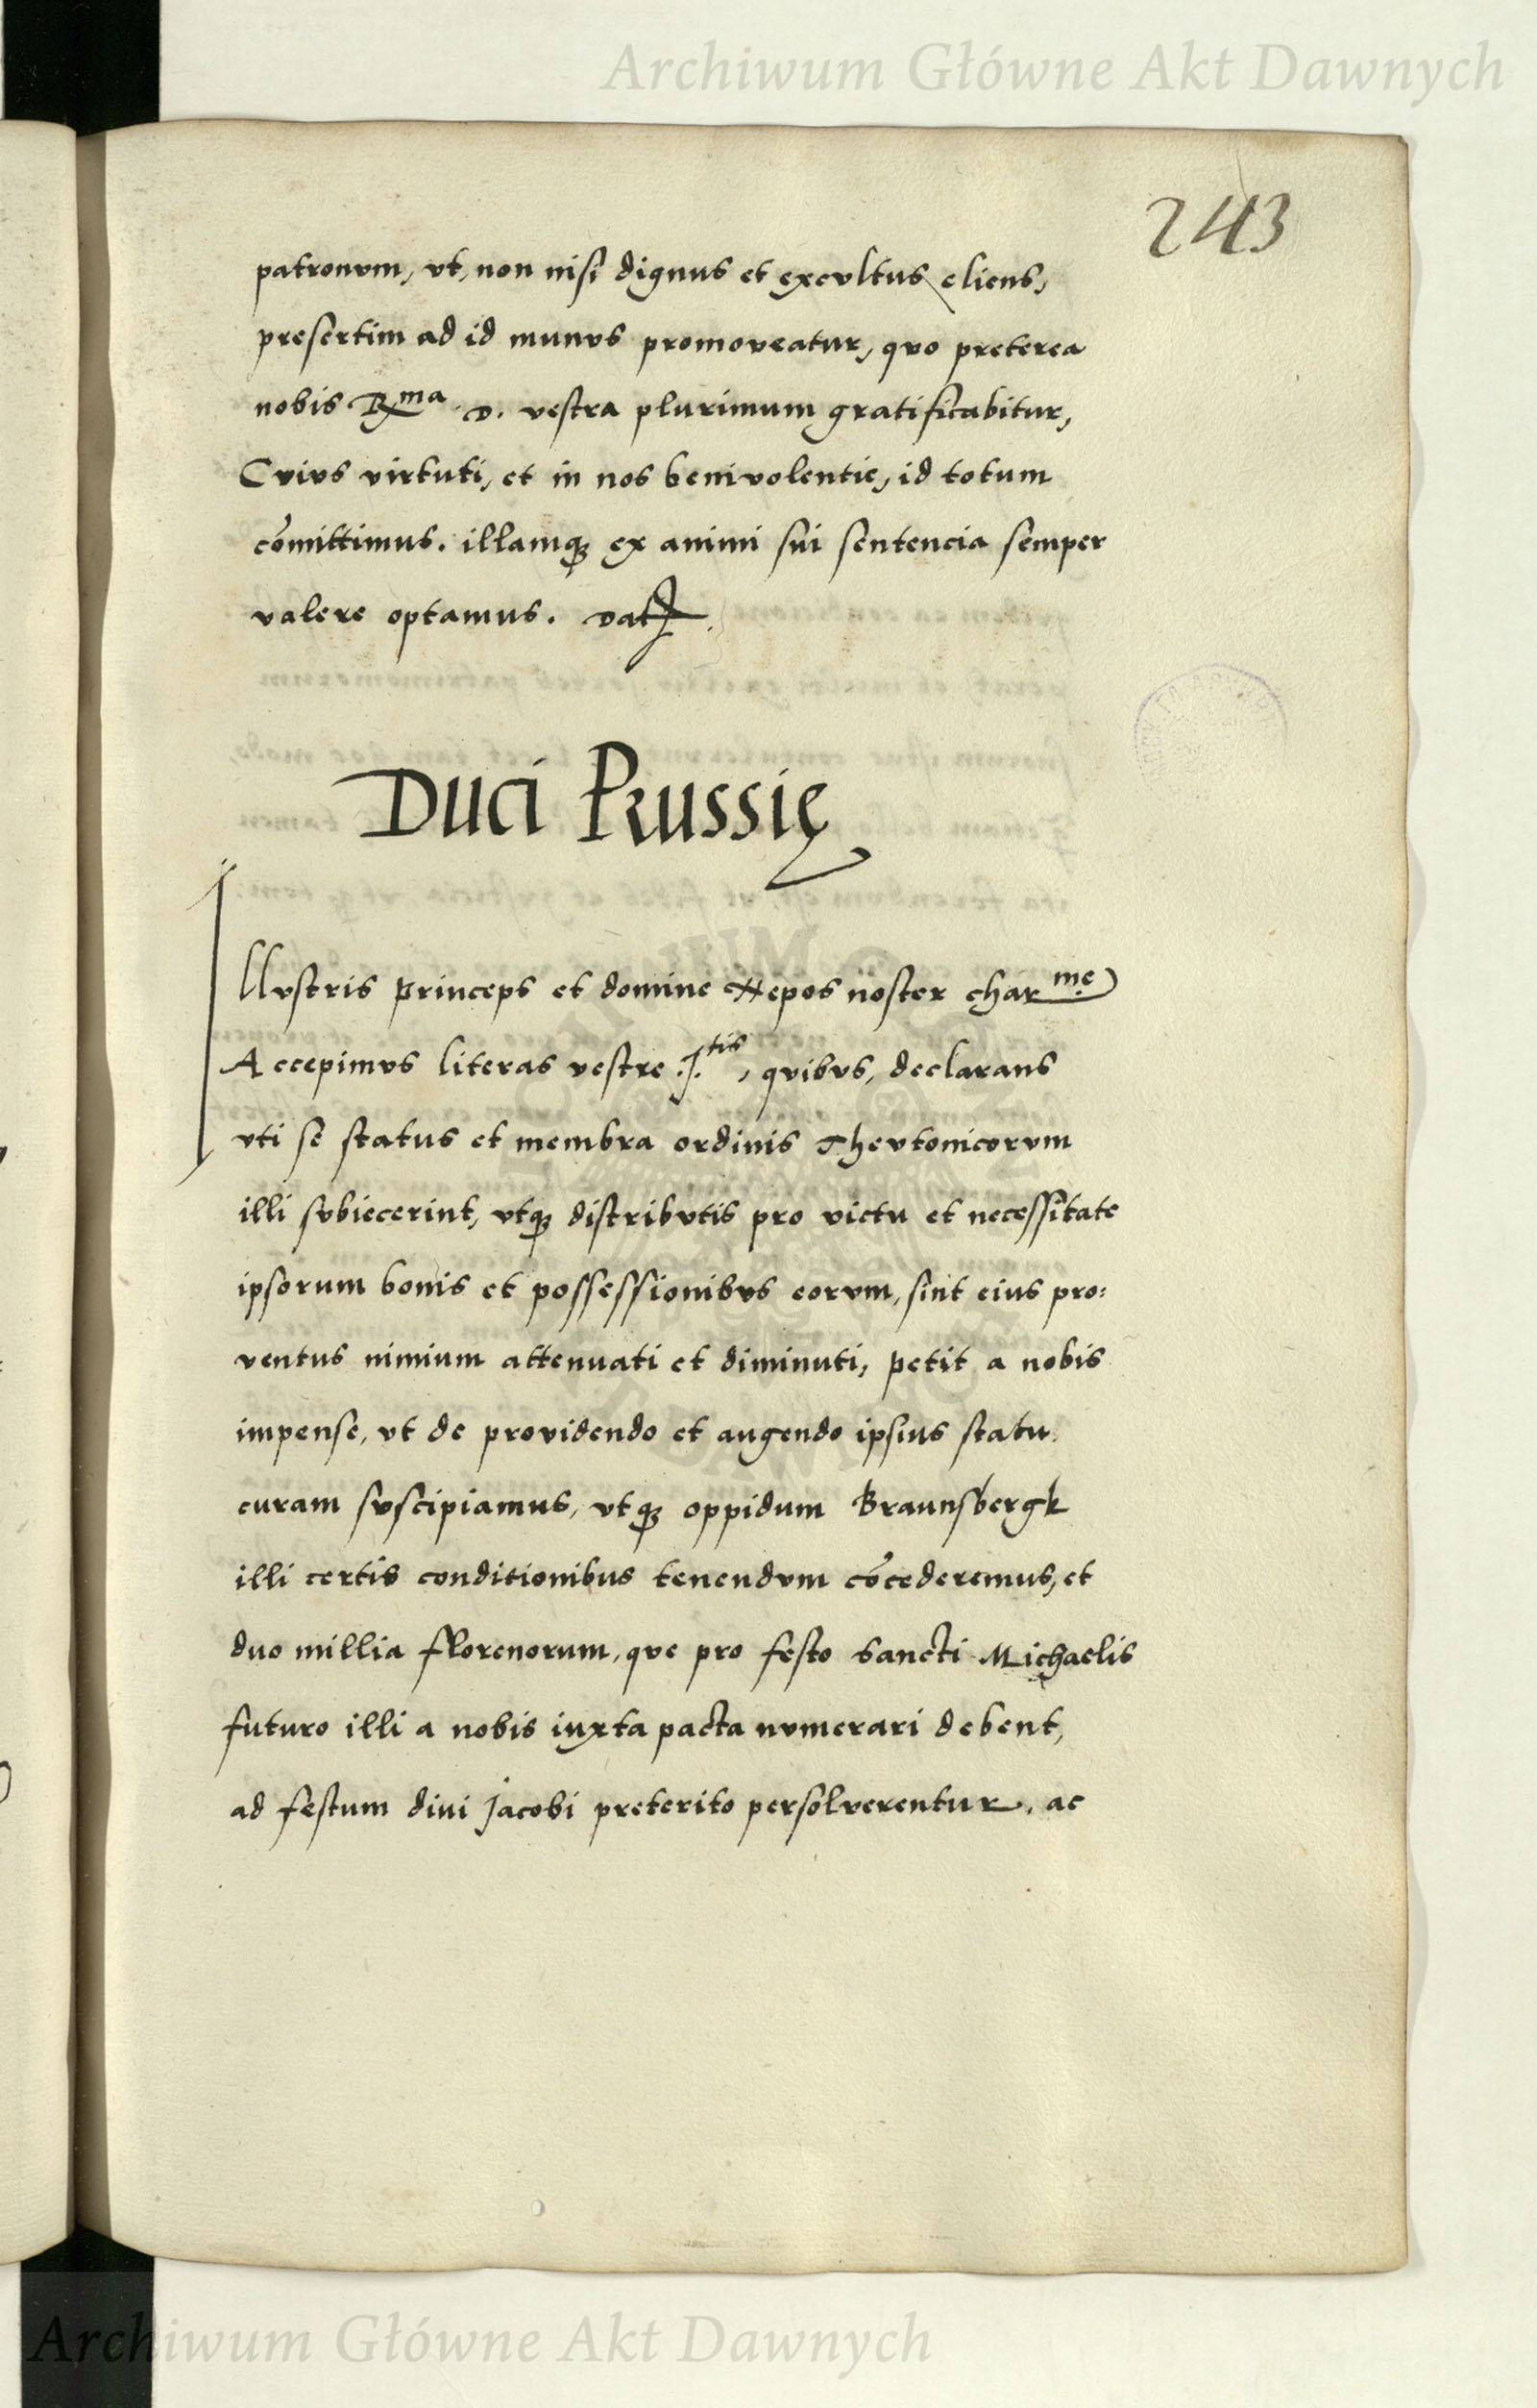 Archiwum Główne Akt Dawnych
243
patronvm, vt, non nisi dignus et excvltus cliens,
presertim ad id munvs promoveatur, qvo preterea
nobis Rma. D. vestra plurimum gratificabitur,
Cvivs virtuti, et in nos benivolentie, id totum
cōmittimus. illamqꝫ ex animi sui sentencia semper
valere optamus. Dat.
Duci Prussię
Illvstris princeps et domine Nepos noster charme
Accepimvs literas vestre .I.tis, qvibvs, declarans
vti se status et membra ordinis Thevtonicorvm
illi svbiecerint, vtqꝫ distribvtis pro victu et necessitate
ipsorum bonis et possessionibvs eorvm, sint eius pro:
ventus nimium attenuati et diminuti, petit a nobis
impense, vt de providendo et augendo ipsius statu.
curam svscipiamus, vtqꝫ oppidum Braunsbergk
illi certis conditionibus tenendvm cōcederemus, et
duo millia florenorum, qve pro festo Sancti Michaelis
futuro illi a nobis iuxta pacta nvmerari debent,
ad festum diui Jacobi preterito persolverentur, ac
Archiwum Główne Akt Dawnych